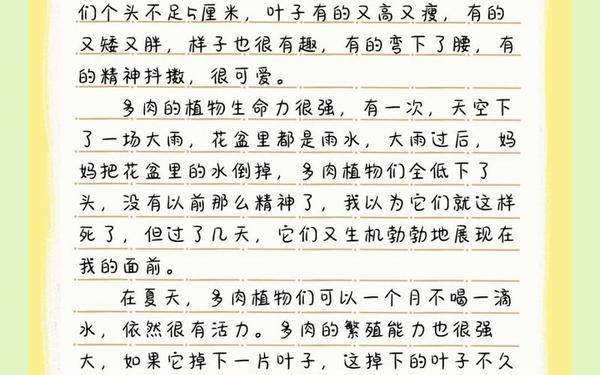 们个头不足5厘米，叶子有的又高又瘦，有的
又矮又胖，样子也很有趣，有的弯下了腰，有
的精神抖擞，很可爱。
多肉的植物生命力很强，有一次，天空下
了一场大雨，花盆里都是雨水，大雨过后，妈
妈把花盆里的水倒掉，多肉植物们全低下了
头，没有以前那么精神了，我以为它们就这样
死了，但过了几天，它们又生机勃勃地展现在
我的面前。
在夏天，多肉植物们可以一个月不喝一滴
水，依然很有活力。多肉的繁殖能力也很强
大，如果它掉下一片叶子，这掉下的叶子不久